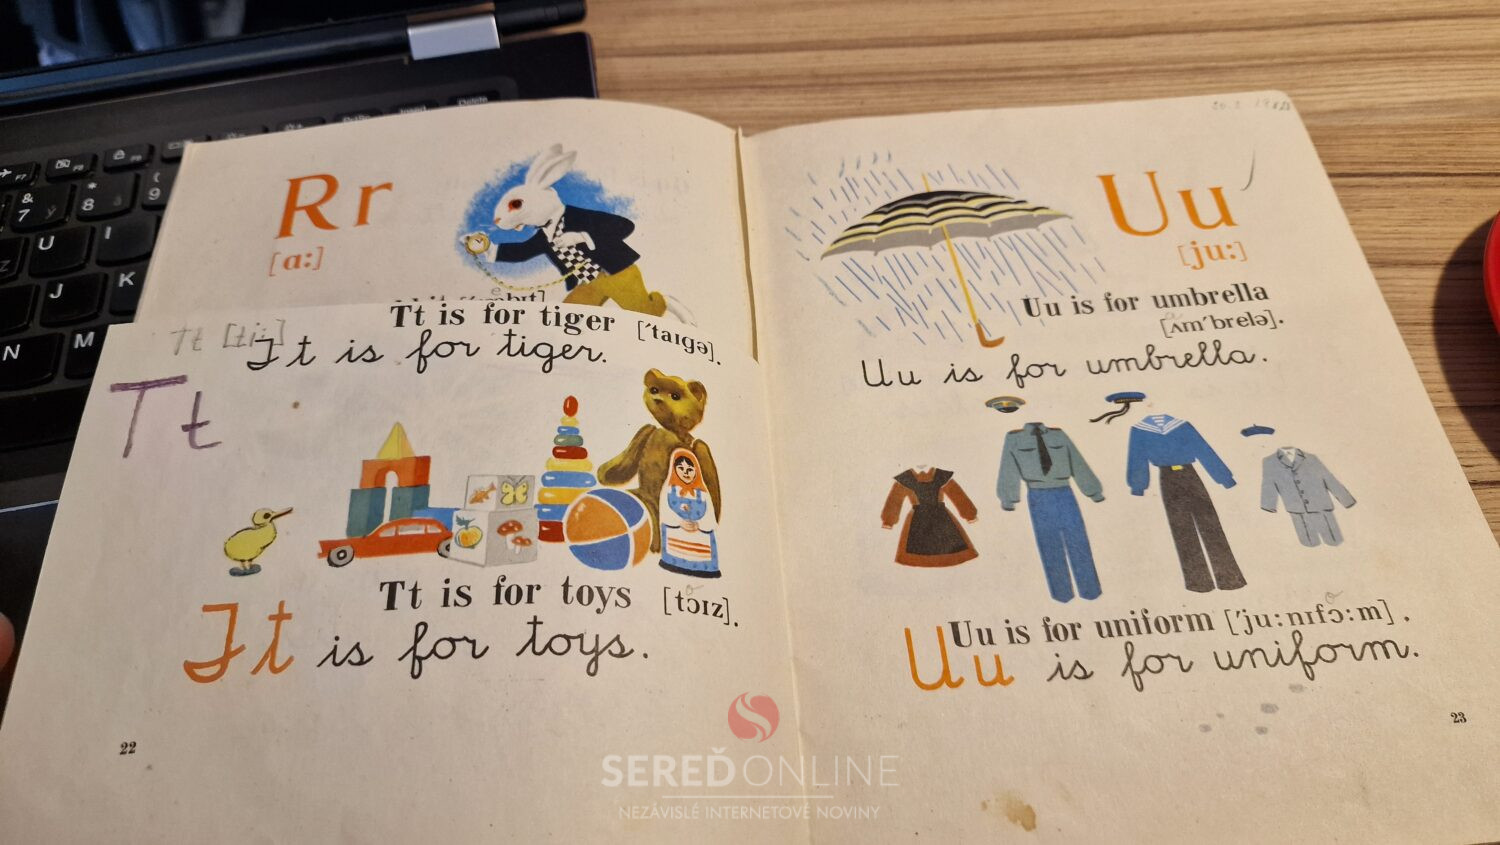 Rr
[ɑ:]
Tt [ti:]
Tt is for tiger ['taɪgə].
Tt is for tiger.
Tt
Tt is for toys [tɔɪz].
Tt is for toys.
22
Uu
[ju:]
Uu is for umbrella
[ʌm'brelə].
Uu is for umbrella.
Uu is for uniform ['ju:nɪfɔ:m].
Uu is for uniform.
23
SEREĎ ONLINE
NEZÁVISLÉ INTERNETOVÉ NOVINY
Delete
F7
F8
F9
&
7
*
8
(
9
U
I
Z
J
K
N
M